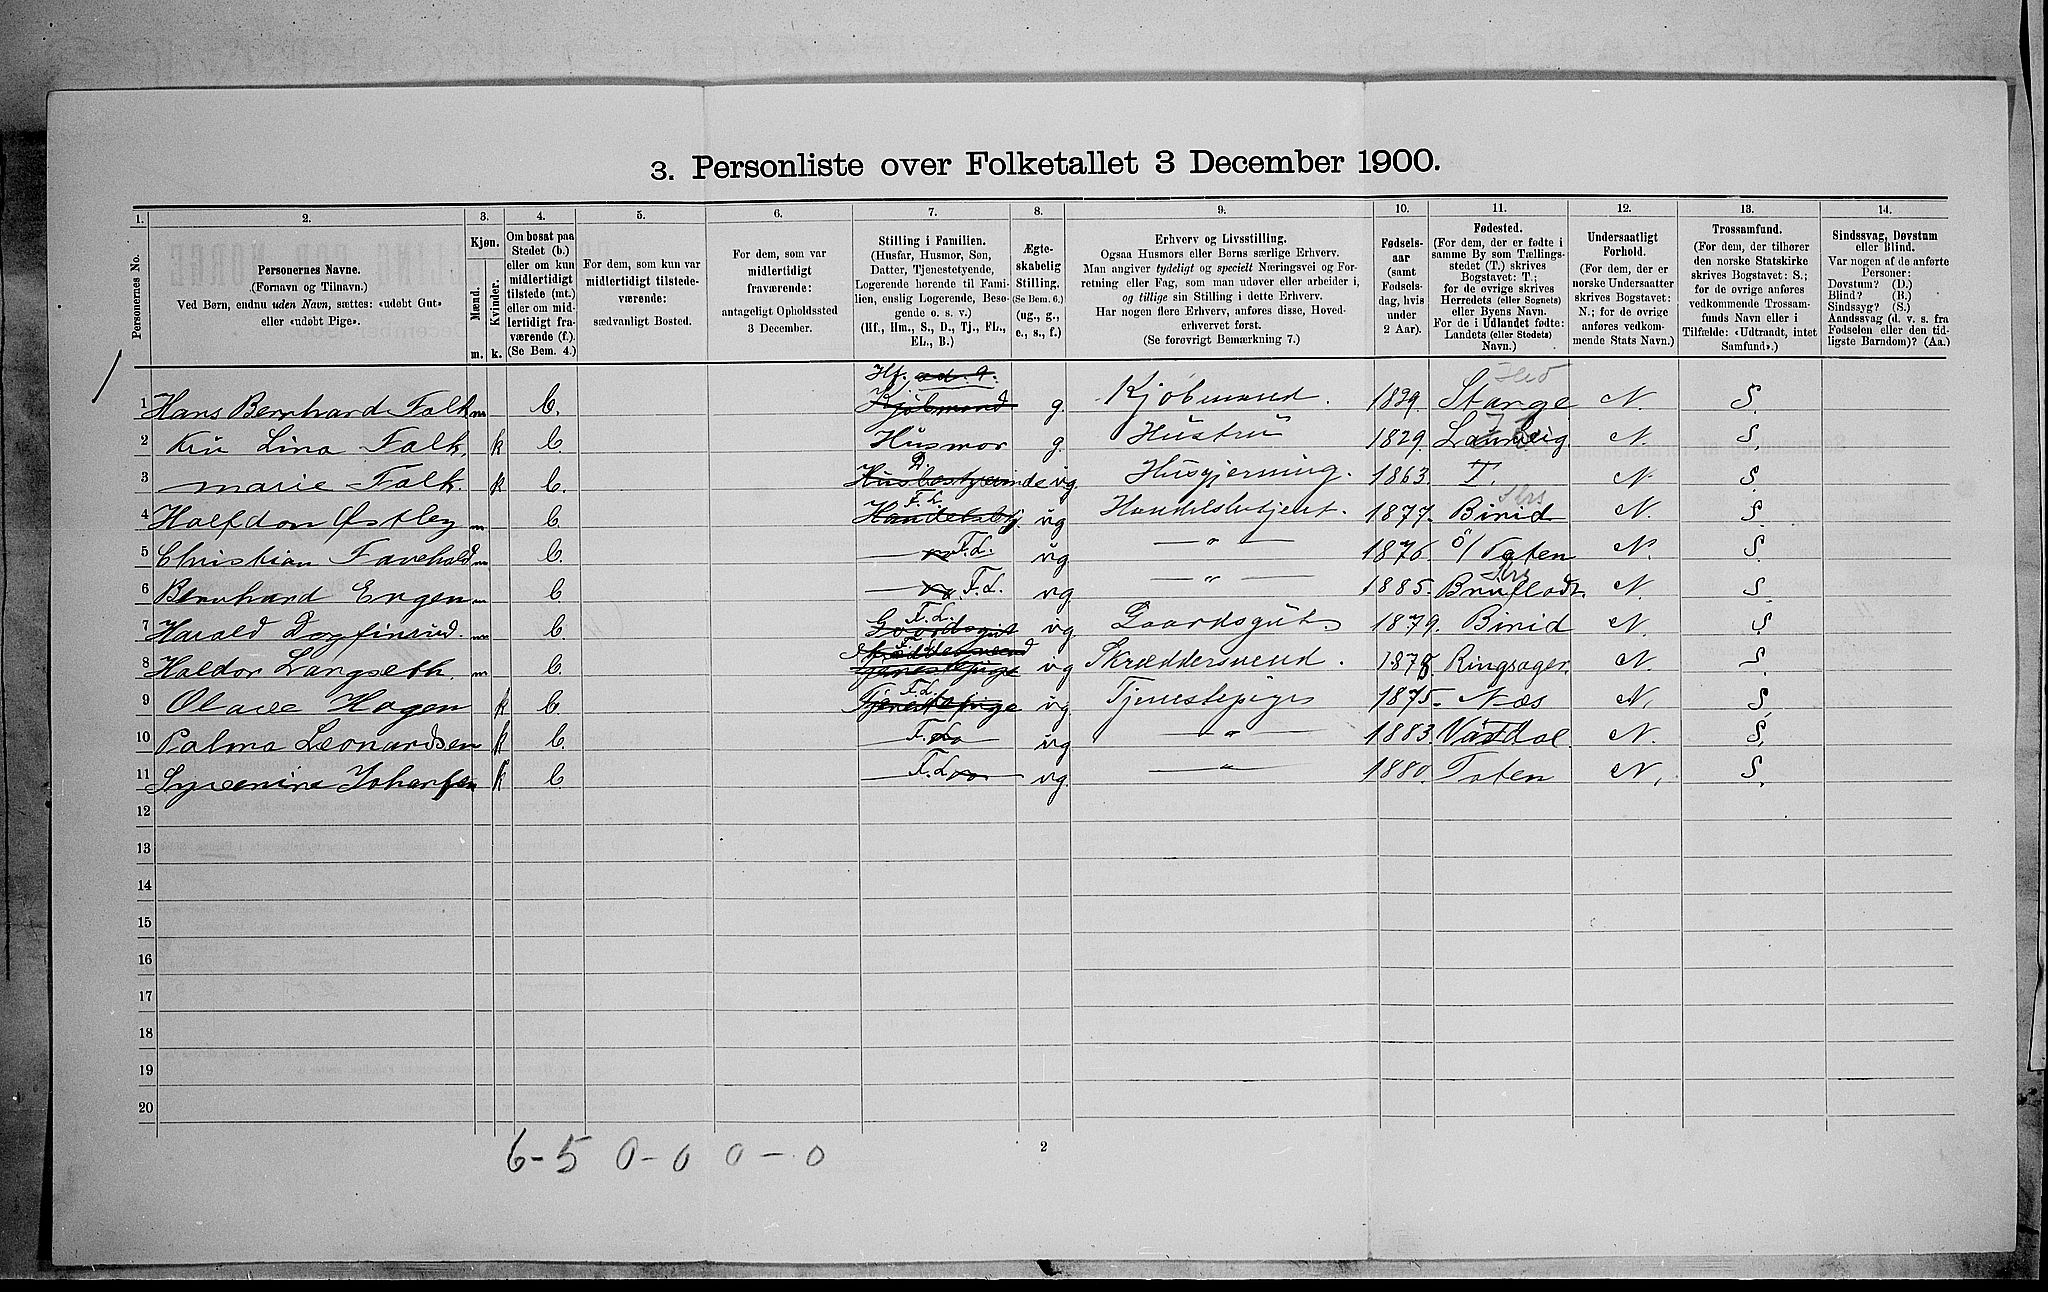 3. Personliste over Folketallet 3 December 1900.
1. 2. 3. 4. 5. 6. 7. 8. 9. 10. 11. 12. 13. 14.
Personernes No.
Personernes Navne.
(Fornavn og Tilnavn.)
Ved Børn, endnu uden Navn, sættes: «udøbt Gut»
eller «udøbt Pige».
Kjøn.
Mænd. Kvinder.
m. k.
Om bosat paa
Stedet (b.)
eller om kun
midlertidigt
tilstede (mt.)
eller om mid-
lertidigt fra-
værende (f.).
(Se Bem. 4.)
For dem, som kun var
midlertidigt tilstede-
værende:
sædvanligt Bosted.
For dem, som var
midlertidigt
fraværende:
antageligt Opholdssted
3 December.
Stilling i Familien.
(Husfar, Husmor, Søn,
Datter, Tjenestetyende,
Logerende hørende til Fami-
lien, enslig Logerende, Besø-
gende o. s. v.)
(Hf., Hm., S., D., Tj., FL.,
EL., B.)
Ægte-
skabelig
Stilling.
(Se Bem. 6.)
(ug., g.,
e., s., f.)
Erhverv og Livsstilling.
Ogsaa Husmors eller Børns særlige Erhverv.
Man angiver tydeligt og specielt Næringsvei og For-
retning eller Fag, som man udøver eller arbeider i,
og tillige sin Stilling i dette Erhverv.
Har nogen flere Erhverv, anføres disse, Hoved-
erhvervet først.
(Se forøvrigt Bemærkning 7.)
Fødsels-
aar
(samt
Fødsels-
dag, hvis
under
2 Aar).
Fødested.
(For dem, der er fødte i
samme By som Tællings-
stedet (T.) skrives
Bogstavet: T.;
for de øvrige skrives
Herredets (eller Sognets)
eller Byens Navn.
For de i Udlandet fødte:
Landets (eller Stedets)
Navn.)
Undersaatligt
Forhold.
(For dem, der er
norske Undersaatter
skrives Bogstavet:
N.; for de øvrige
anføres vedkom-
mende Stats Navn.)
Trossamfund.
(For dem, der tilhører
den norske Statskirke
skrives Bogstavet: S.;
for de øvrige anføres
vedkommende Trossam-
funds Navn eller i
Tilfælde: «Udtraadt, intet
Samfund».)
Sindssvag, Døvstum
eller Blind.
Var nogen af de anførte
Personer:
Døvstum? (D.)
Blind? (B.)
Sindssyg? (S.)
Aandssvag (d. v. s. fra
Fødselen eller den tid-
ligste Barndom)? (Aa.)
1 Hans Bernhard Falk m b. Hf. Kjøbmand g. Kjøbmand. 1829. Stange N. S.
2 Lina Falk k b. Husmor g. Hustru 1829. N. S.
3 Marie Falk. k b. D. ug. Husgjerning. 1863. T. N. S.
4 Halfdan Østby m b. F.L. ug Handelsbetjent. 1877. Birid N. S.
5 Christian m b. F.L. ug — " — 1876 ö/ Toten N. S.
6 Bernhard Engen m b. F.L. ug — " — 1885. N. S.
7 Harald m b. F.L. Gaardsgut ug Gaardsgut. 1879. Birid N. S.
8 Haldor Langseth. m b. ug Skræddersvend. 1878. Ringsager. N. S.
9 Olave Hagen k b. F.L. Tjenestepige ug. Tjenestepige 1875 Næs N. S.
10 Palma Leonardsen k b. F.L. ug — " — 1883. N. S.
11 k b. F.L. ug. — " — 1880. Toten N. S.
12
13
14
15
16
17
18
19
20
6-5 0-0 0-0
2